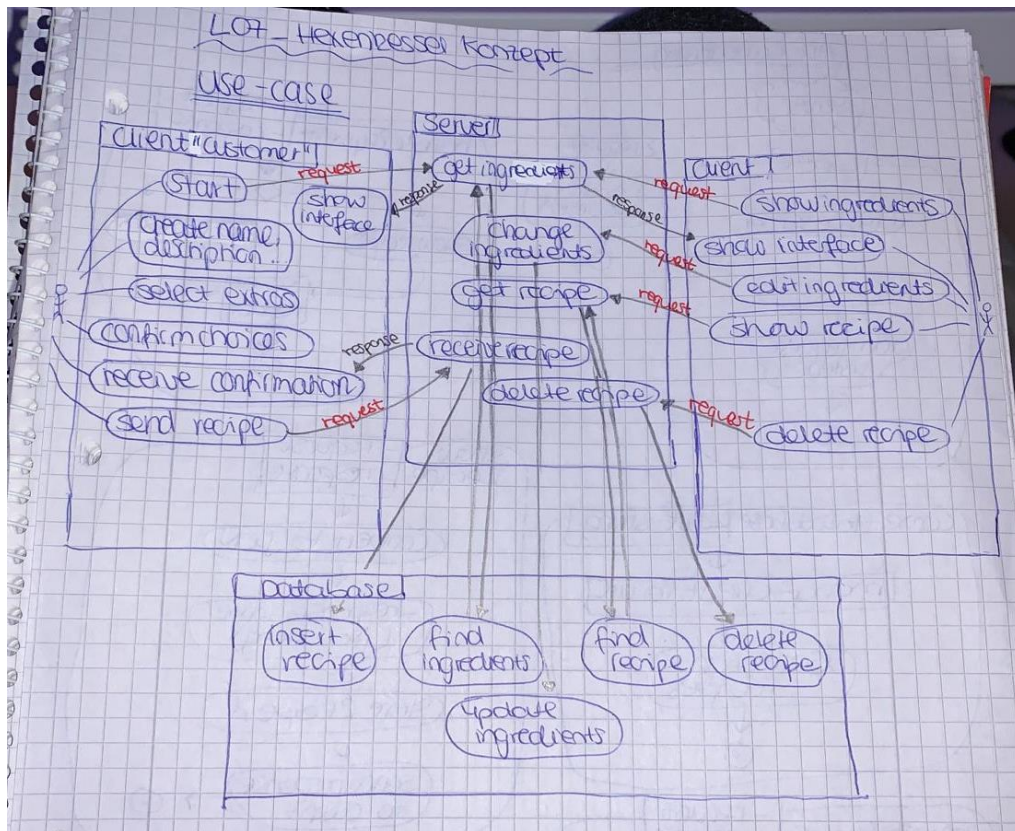 L07_Hexenkessel Konzept
use-case
Client "Customer"
start
show
interface
create name,
description...
select extras
confirm choices
receive confirmation
send recipe
request
response
response
request
Server
get ingredients
change
ingredients
get recipe
receive recipe
delete recipe
Client
request
show ingredients
response
show interface
request
edit ingredients
request
show recipe
request
delete recipe
Database
insert
recipe
find
ingredients
find
recipe
delete
recipe
update
ingredients